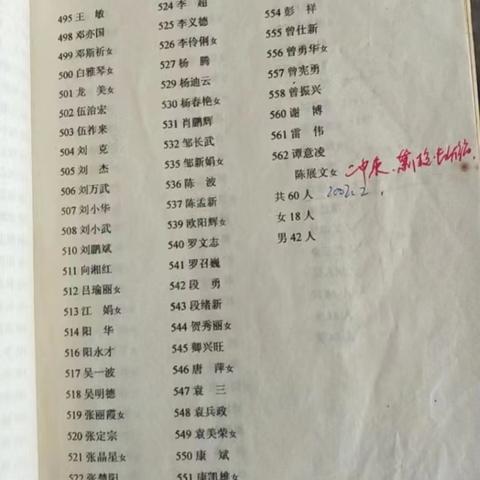 495 王　敏
498 邓亦国
499 邓斯祈女
500 白雅琴女
501 龙　美女
502 伍治宏
503 伍祚来
504 刘　克
505 刘　杰
506 刘万武
507 刘小华
508 刘小武
510 刘鹏斌
511 向湘红
512 吕瑜丽女
513 江　娟女
514 阳　华
516 阳永才
517 吴一波
518 吴明德
519 张丽霞女
520 张定宗
521 张晶星女
522 张楚阳
524 李　超
525 李义德
526 李伶俐女
527 杨　腾
529 杨迪云
530 杨春艳女
531 肖鹏辉
532 邹长武
535 邹新娟女
536 陈　波
537 陈孟新
539 欧阳辉女
540 罗文志
541 罗召巍
542 段　勇
543 段绪新
544 贺秀丽女
545 卿兴旺
546 唐　萍女
547 袁　三
548 袁兵政
549 袁美荣女
550 康　斌
551 康凯雄女
554 彭　祥
555 曾仕新
556 曾勇华女
557 曾宪勇
558 曾振兴
560 谢　博
561 雷　伟
562 谭意凌
陈展文女
共 60 人 2002.2.
女 18 人
男 42 人